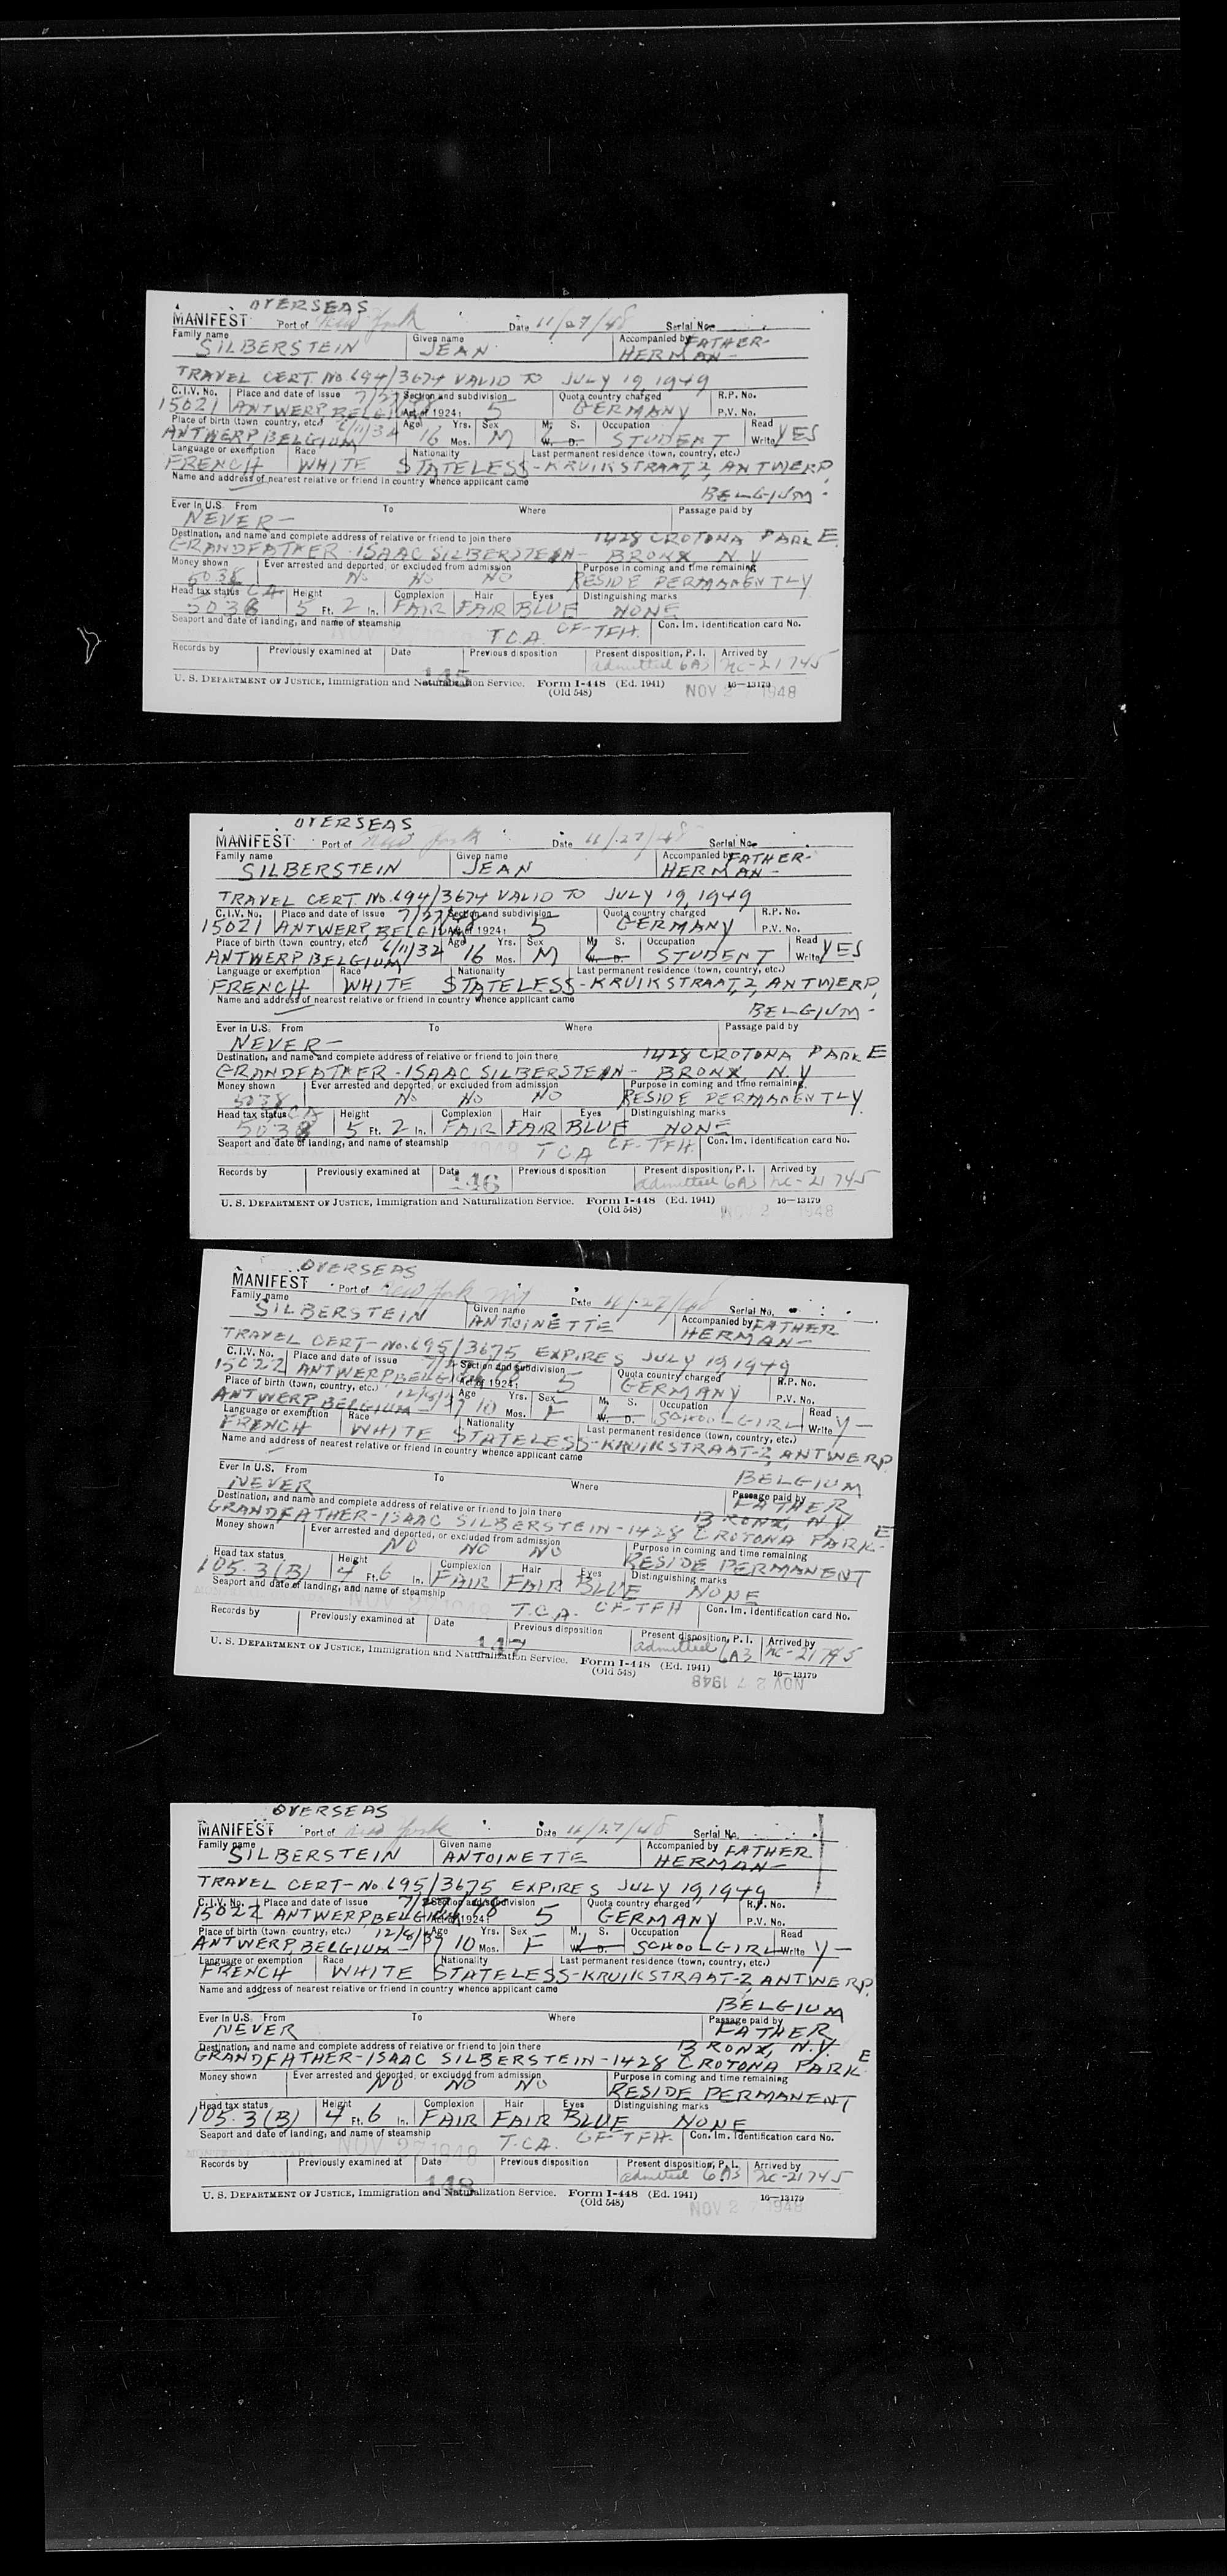 OVERSEAS
MANIFEST Port of New York Date 11/27/48 Serial No.
Family name Given name Accompanied by FATHER-
SILBERSTEIN JEAN HERMAN-
TRAVEL CERT. NO. 694/3674 VALID TO JULY 19, 1949
C.I.V. No. Place and date of issue 7/27/48 Section and subdivision Quota country charged R.P. No.
15021 ANTWERP BELGIUM Act of 1924: 5 GERMANY P.V. No.
Place of birth (town country, etc.) 6/11/32 Age Yrs. Sex M. S. Occupation Read
ANTWERP BELGIUM 16 Mos. M W. D. STUDENT Write YES
Language or exemption Race Nationality Last permanent residence (town, country, etc.)
FRENCH WHITE STATELESS-KRUIKSTRAAT, 2, ANTWERP
Name and address of nearest relative or friend in country whence applicant came
BELGIUM.
Ever in U.S. From To Where Passage paid by
NEVER-
Destination, and name and complete address of relative or friend to join there 1428 CROTONA PARK E.
GRANDFATHER-ISAAC SILBERSTEIN- BRONX, N.Y
Money shown Ever arrested and deported, or excluded from admission Purpose in coming and time remaining
5038 No No No RESIDE PERMANENTLY
Head tax status CA Height Complexion Hair Eyes Distinguishing marks
5038 5 Ft. 2 In. FAIR FAIR BLUE NONE
Seaport and date of landing, and name of steamship T.C.A. CF-TFH. Con. Im. Identification card No.
Records by Previously examined at Date Previous disposition Present disposition, P. I. Arrived by
145 admitted 6A3 nc-21745
U. S. DEPARTMENT OF JUSTICE, Immigration and Naturalization Service. Form I-448 (Ed. 1941) 16-13179
(Old 548) NOV 27 1948
OVERSEAS
MANIFEST Port of New York Date 11/27/48 Serial No.
Family name Given name Accompanied by FATHER-
SILBERSTEIN JEAN HERMAN-
TRAVEL CERT. NO. 694/3674 VALID TO JULY 19, 1949
C.I.V. No. Place and date of issue 7/27/48 Section and subdivision Quota country charged R.P. No.
15021 ANTWERP BELGIUM Act of 1924: 5 GERMANY P.V. No.
Place of birth (town country, etc.) 6/11/32 Age Yrs. Sex M. S. Occupation Read
ANTWERP BELGIUM 16 Mos. M W. D. STUDENT Write YES
Language or exemption Race Nationality Last permanent residence (town, country, etc.)
FRENCH WHITE STATELESS-KRUIKSTRAAT, 2, ANTWERP,
Name and address of nearest relative or friend in country whence applicant came
BELGIUM-
Ever in U.S. From To Where Passage paid by
NEVER-
Destination, and name and complete address of relative or friend to join there 1428 CROTONA PARK E
GRANDFATHER-ISAAC SILBERSTEIN- BRONX, N.Y
Money shown Ever arrested and deported, or excluded from admission Purpose in coming and time remaining
5038 No No No RESIDE PERMANENTLY
Head tax status CA Height Complexion Hair Eyes Distinguishing marks
5038 5 Ft. 2 In. FAIR FAIR BLUE NONE
Seaport and date of landing, and name of steamship TCA CF-TFH. Con. Im. Identification card No.
Records by Previously examined at Date Previous disposition Present disposition, P. I. Arrived by
146 admitted 6A3 nc-21745
U. S. DEPARTMENT OF JUSTICE, Immigration and Naturalization Service. Form I-448 (Ed. 1941) 16-13179
(Old 548) NOV 27 1948
OVERSEAS
MANIFEST Port of New York Date 11/27/48 Serial No.
Family name Given name Accompanied by FATHER
SILBERSTEIN ANTOINETTE HERMAN-
TRAVEL CERT-No. 695/3675 EXPIRES JULY 19, 1949
C.I.V. No. Place and date of issue Section and subdivision Quota country charged R.P. No.
15022 ANTWERP BELGIUM Act of 1924: 5 GERMANY P.V. No.
Place of birth (town, country, etc.) 12/8/37 Age Yrs. Sex M. S. Occupation Read
ANTWERP BELGIUM- 10 Mos. F W. D. SCHOOLGIRL Write Y-
Language or exemption Race Nationality Last permanent residence (town, country, etc.)
FRENCH WHITE STATELESS-KRUIKSTRAAT-2, ANTWERP.
Name and address of nearest relative or friend in country whence applicant came
BELGIUM
Ever in U.S. From To Where Passage paid by
NEVER FATHER
Destination, and name and complete address of relative or friend to join there BRONX, N.Y.
GRANDFATHER-ISAAC SILBERSTEIN-1428 CROTONA PARK-E
Money shown Ever arrested and deported, or excluded from admission Purpose in coming and time remaining
NO NO NO RESIDE PERMANENT
Head tax status Height Complexion Hair Eyes Distinguishing marks
105.3(B) 4 Ft. 6 In. FAIR FAIR BLUE NONE
Seaport and date of landing, and name of steamship T.C.A. CF-TFH Con. Im. Identification card No.
NOV 27 1948
Records by Previously examined at Date Previous disposition Present disposition, P. I. Arrived by
147 admitted 6A3 nc-21745
U. S. DEPARTMENT OF JUSTICE, Immigration and Naturalization Service. Form I-448 (Ed. 1941) 16-13179
(Old 548) NOV 27 1948
OVERSEAS
MANIFEST Port of New York Date 11/27/48 Serial No.
Family name Given name Accompanied by FATHER
SILBERSTEIN ANTOINETTE HERMAN-
TRAVEL CERT-No. 695/3675 EXPIRES JULY 19, 1949
C.I.V. No. Place and date of issue 7/27/48 Section and subdivision Quota country charged R.P. No.
15022 ANTWERP BELGIUM Act of 1924: 5 GERMANY P.V. No.
Place of birth (town country, etc.) 12/8/37 Age Yrs. Sex M. S. Occupation Read
ANTWERP BELGIUM- 10 Mos. F W. D. SCHOOLGIRL Write Y-
Language or exemption Race Nationality Last permanent residence (town, country, etc.)
FRENCH WHITE STATELESS-KRUIKSTRAAT-2, ANTWERP.
Name and address of nearest relative or friend in country whence applicant came
BELGIUM
Ever in U.S. From To Where Passage paid by
NEVER FATHER
Destination, and name and complete address of relative or friend to join there BRONX, N.Y.
GRANDFATHER-ISAAC SILBERSTEIN-1428 CROTONA PARK-E
Money shown Ever arrested and deported, or excluded from admission Purpose in coming and time remaining
NO NO NO RESIDE PERMANENT
Head tax status Height Complexion Hair Eyes Distinguishing marks
105.3(B) 4 Ft. 6 In. FAIR FAIR BLUE NONE
Seaport and date of landing, and name of steamship T.C.A. CF-TFH. Con. Im. Identification card No.
MONTREAL CANADA NOV 27 1948
Records by Previously examined at Date Previous disposition Present disposition, P. I. Arrived by
148 admitted 6A3 nc-21745
U. S. DEPARTMENT OF JUSTICE, Immigration and Naturalization Service. Form I-448 (Ed. 1941) 16-13179
(Old 548) NOV 27 1948